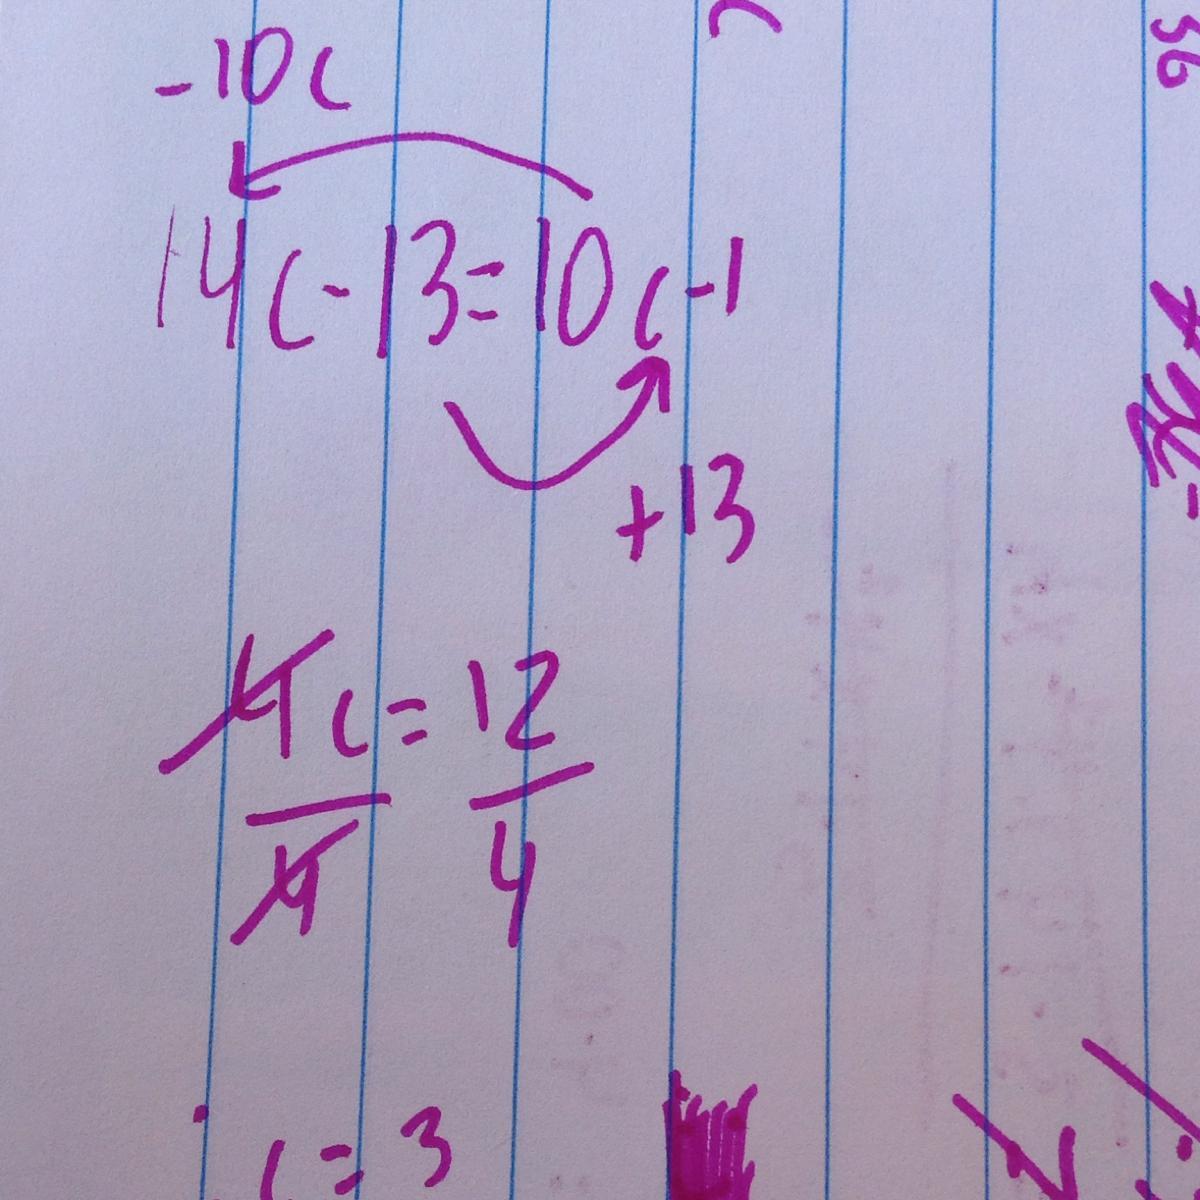 -10c
14c-13=10c-1
+13
4c=12
4 4
c=3
36